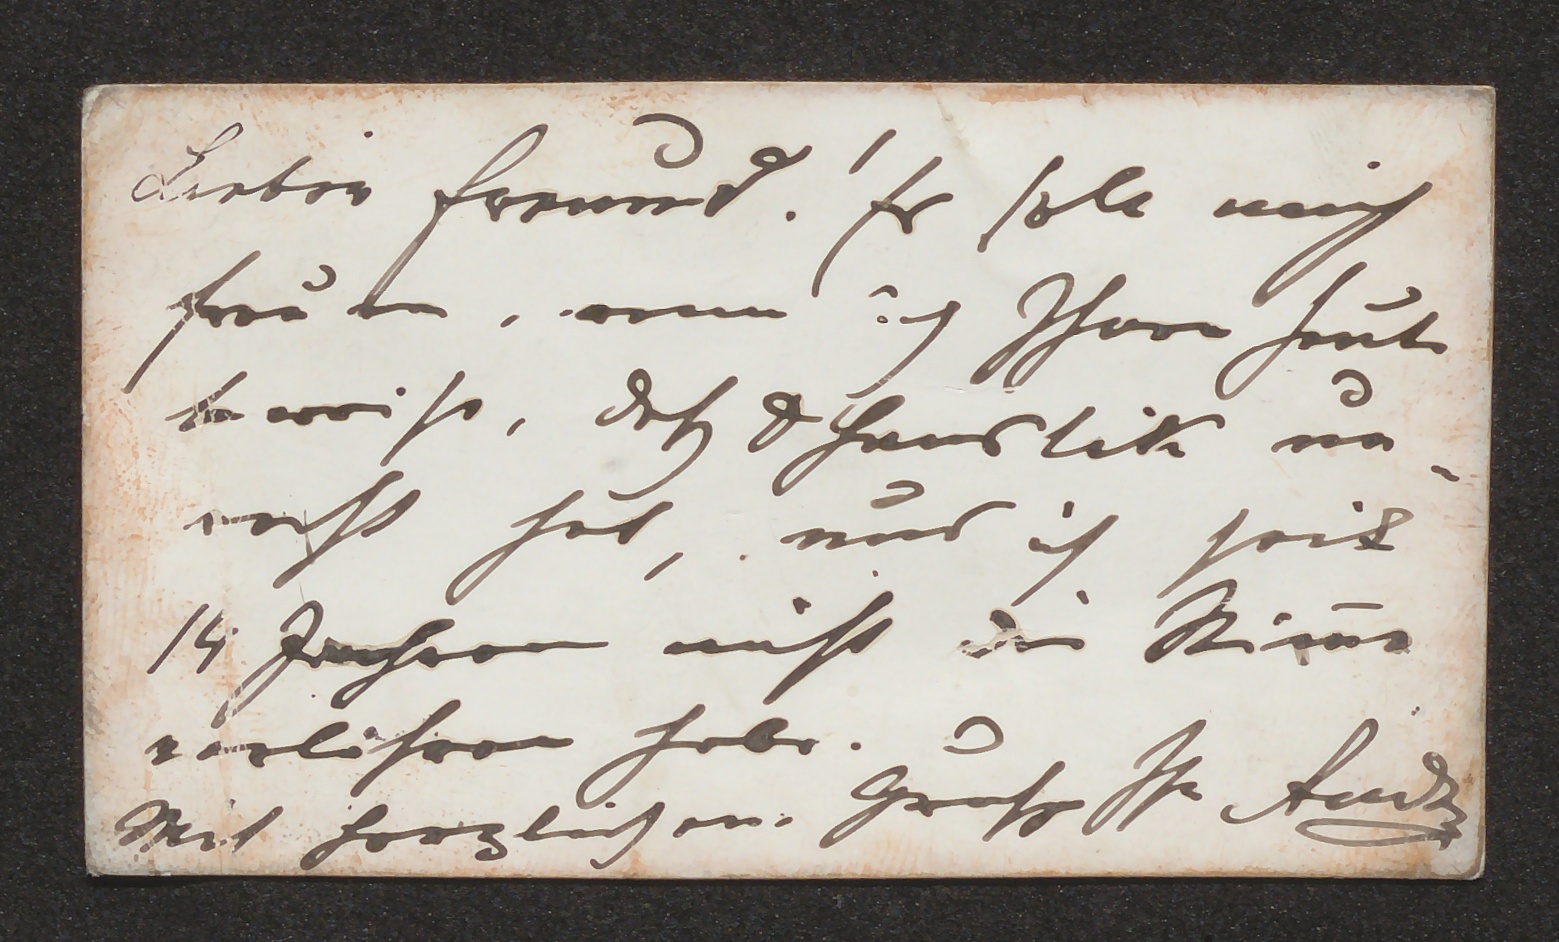 Lieber Freund! Es soll mich
freuen, wenn ich Ihnen heute
beweise, daß D Hanslik un-
recht hat, und ich seit
14 Jahren nicht die Stimme
verlohren habe.
Mit herzlichem Gruß Ihr